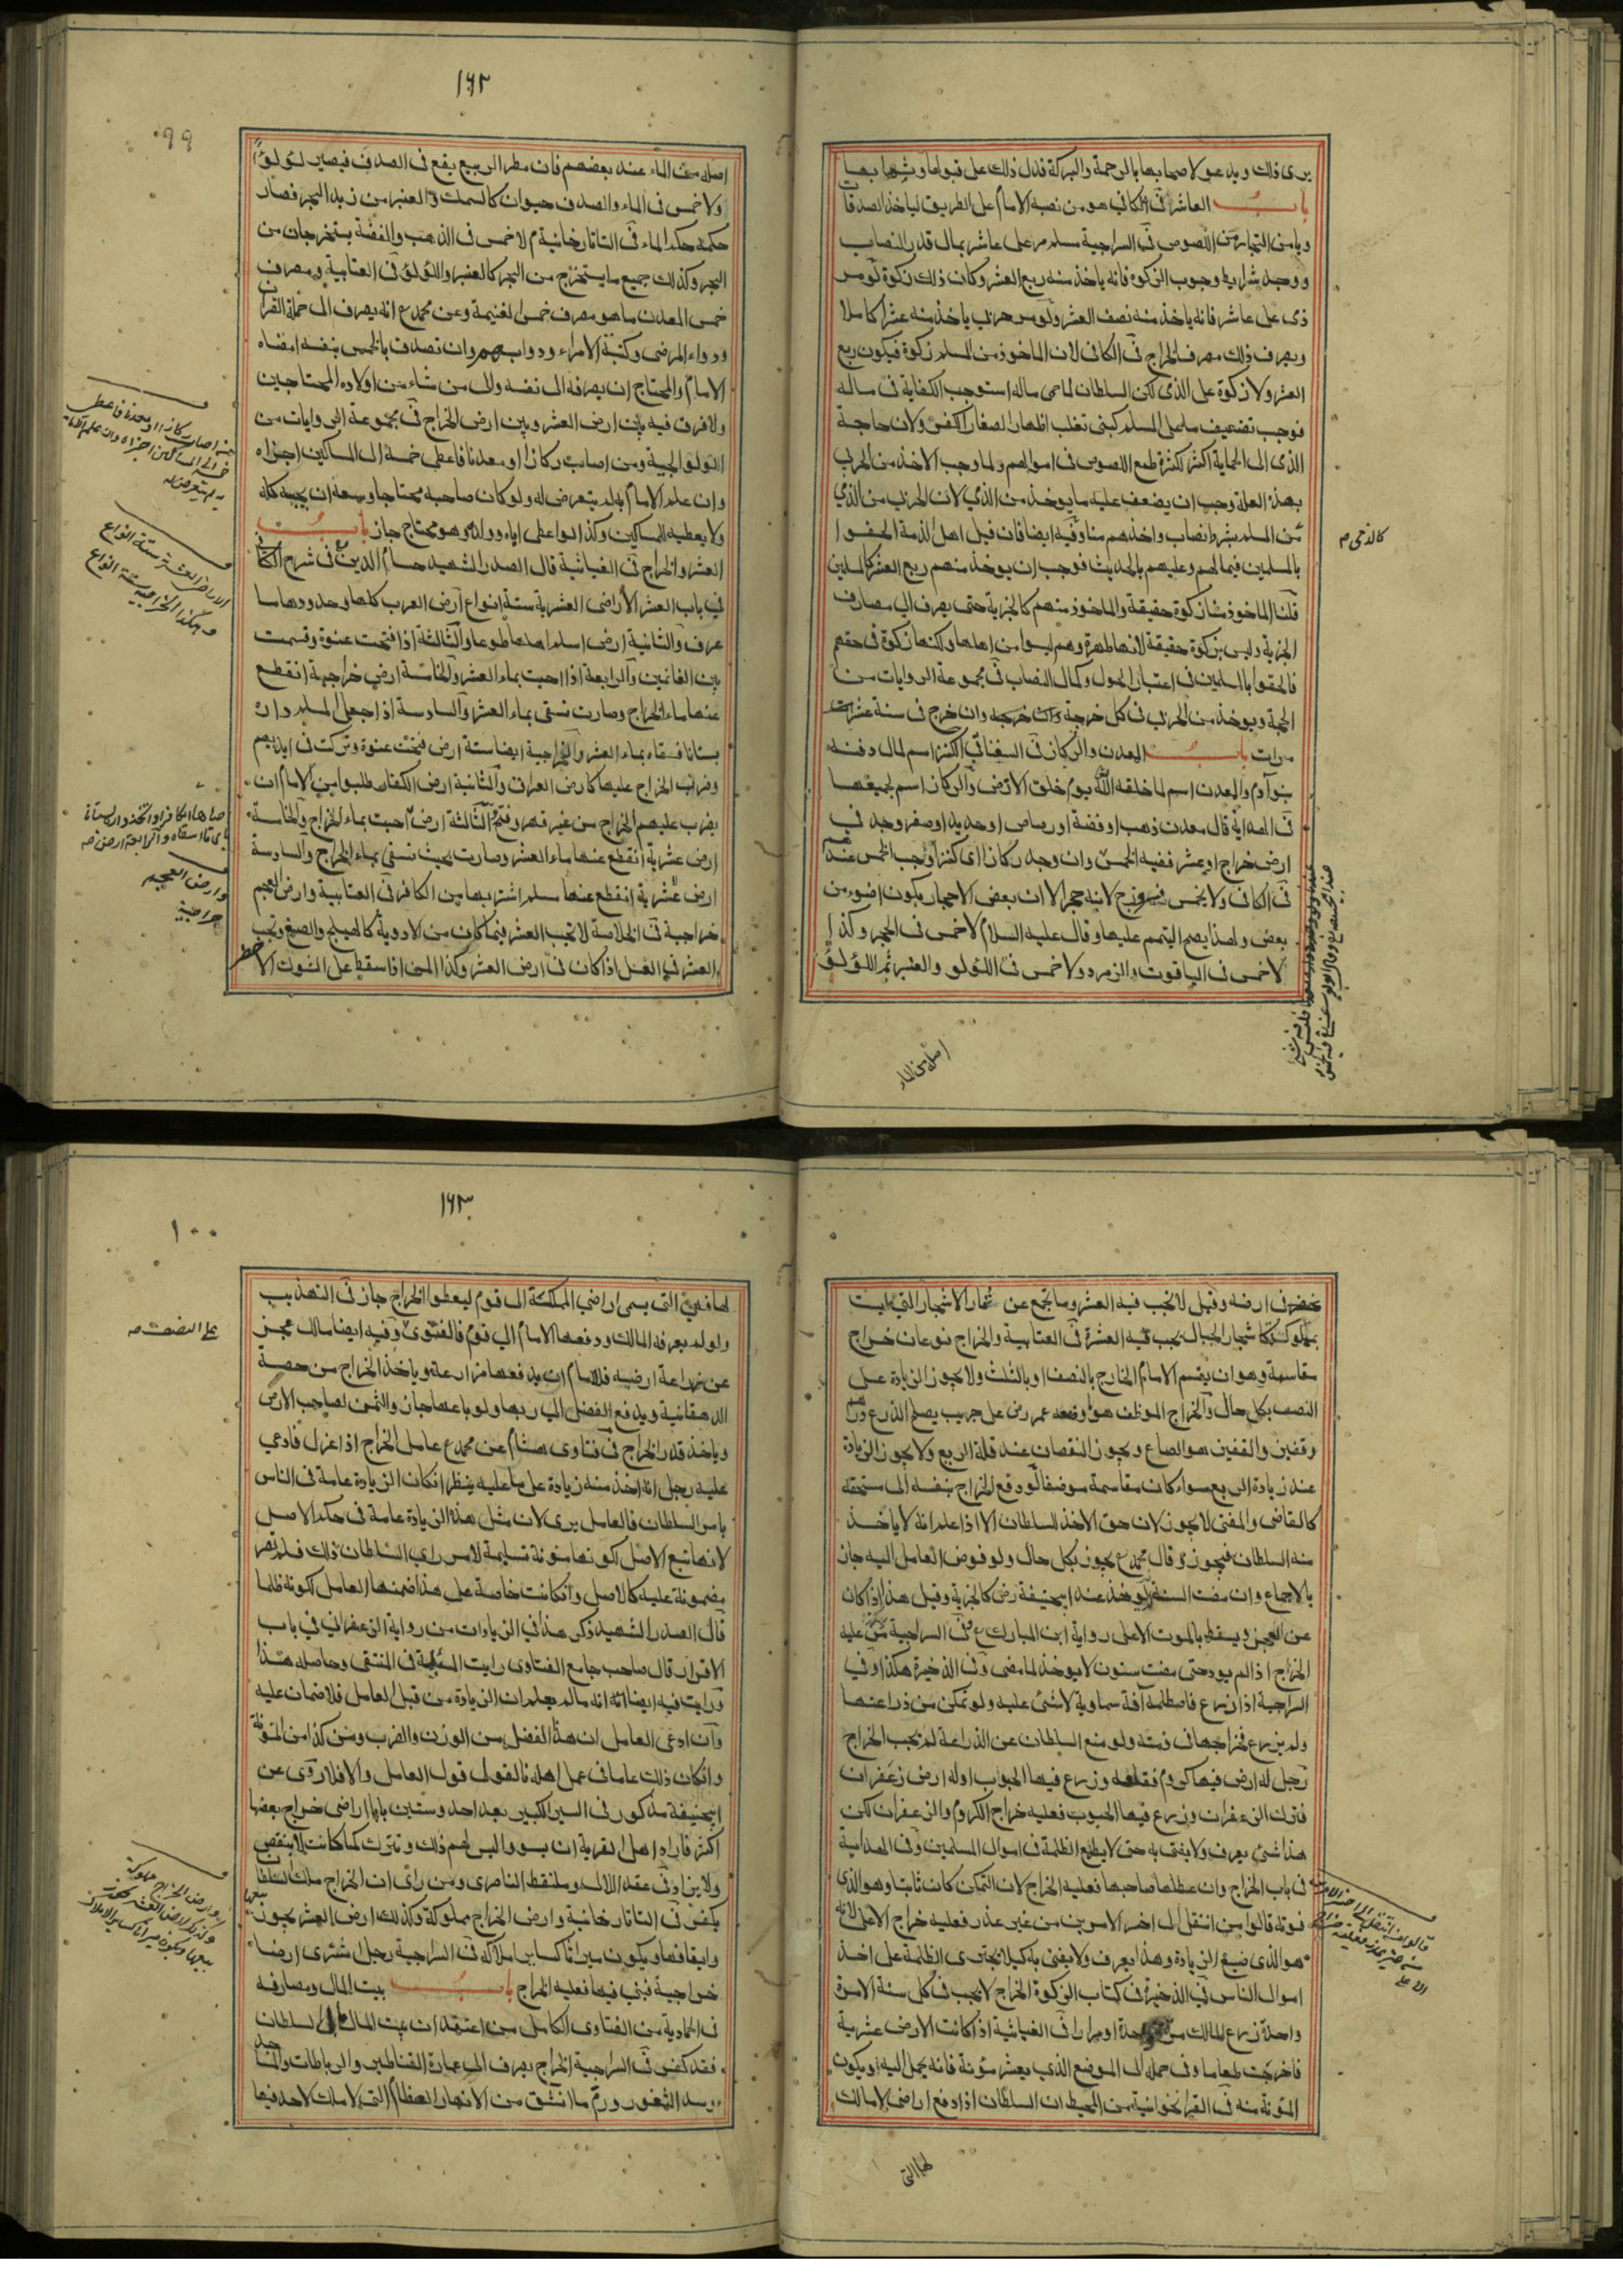 يرى ذلك ويدعو لاصحابها بالرحمة والبركة فدل ذلك على قبولها وثوابها
باب العاشر في الكافي هو من نصبه الامام على الطريق لياخذ الصدقات
ويامن التجار من اللصوص في السراجية مسلم مر على عاشر بمال قدر النصاب
ووجد شرايط وجوب الزكوة فانه ياخذ منه ربع العشر وكان ذلك زكوة لو مر
ذمي على عاشر فانه ياخذ منه نصف العشر ولو مر حربي ياخذ منه عشرا كاملا
ويصرف ذلك مصرف الخراج في الكافي لان الماخوذ من المسلم زكوة فيكون ربع
العشر ولا زكوة على الذمي لكن السلطان لما حمى ماله استوجب الكفاية في ماله
فوجب تضعيف ما على المسلم كبني تغلب اظهارا لصغار الكفر ولان حاجة
الذمي الى الحماية اكثر لكثرة طمع اللصوص في اموالهم ولما وجب الاخذ من الحربي
بهذه العلة وجب ان يضعف عليه ما يوخذ من الذمي لان الحربي من الذمي
من المسلم بشرط نصاب واخذهم منا وفيه ايضا فان قيل اهل الذمة الحقوا
بالمسلمين فيما لهم وعليهم بالحديث فوجب ان يوخذ منهم ربع العشر كالمسلمين
قلنا الماخوذ منا زكوة حقيقة والماخوذ منهم كالجزية حتى يصرف الى مصارف
الجزية وليس بزكوة حقيقة لانها طهرة وهم ليسوا من اهلها ولكنها زكوة في حقهم
فالحقوا بالمسلمين في اعتبار الحول وكمال النصاب في مجموعة الروايات من
الحجة ويوخذ من الحربي في كل خرجة وان خرج في سنة عشر
مرات باب المعدن والركاز في السغناقي الكنز اسم لمال دفنه
بنو آدم والمعدن اسم لما خلقه الله يوم خلق الارض والركاز اسم لجميعها
في الهداية قال معدن ذهب او فضة او رصاص او حديد او صفر وجد في
ارض خراج او عشر ففيه الخمس وان وجد ركازا اى كنزا وجب الخمس عندهم
في الكافي ولا يخمس فيروزج لانه حجر الا ان بعض الاحجار يكون اضوء من
بعض ولهذا يصح التيمم عليها وقال عليه السلام لا خمس في الحجر وكذا
لا خمس في الياقوت والزمرد ولا خمس في اللؤلو والعنبر ثم اللؤلؤ
كالذمي صح
اصله من الماء
١٦٢
٩٩
اصله من الماء عند بعضهم فان مطر الربيع يقع في الصدف فيصير لؤلؤا
ولا خمس في الماء والصدف حيوان كالسمك والعنبر من زبد البحر فصار
حكمه حكم الماء في التاتارخانية م لا خمس في الذهب والفضة يستخرجان من
البحر وكذلك جميع ما يستخرج من البحر كالعنبر واللؤلؤ في العتابية ومصرف
خمس المعدن ما هو مصرف خمس الغنيمة وعن محمد ع انه يصرف الى حملة القرآن
ودواء المرضى وكتبة الامراء ودوابهم وان تصدق بالخمس بنفسه امضاه
الامام والمحتاج ان يصرفه الى نفسه والى من شاء من اولاده المحتاجين
ولا فرق فيه بين ارض العشر وبين ارض الخراج في مجموعة الروايات من
الولوالجية ومن اصاب ركازا او معدنا فاعطى خمسه الى المساكين اجزاه
وان علم الامام به لم يتعرض له ولو كان صاحبه محتاجا وسعه ان يحبسه كله
ولا يعطيه للمساكين وكذا لو اعطى اباه وولده وهو محتاج جاز باب
العشر والخراج في الغياثية قال الصدر الشهيد حسام الدين ع في شرح الكافي
في باب العشر الاراضي العشرية ستة انواع ارض العرب كلها وحدودها ما
عرف والثانية ارض اسلم اهلها طوعا والثالثة اذا فتحت عنوة وقسمت
بين الغانمين والرابعة اذا احييت بماء العشر والخامسة ارض خراجية انقطع
عنها ماء الخراج وصارت تسقى بماء العشر والسادسة اذا جعل المسلم داره
بستانا فسقاه بماء العشر والخراجية ايضا ستة ارض فتحت عنوة وتركت في ايديهم
وضرب الخراج عليها كارض العراق والثانية ارض الكفار طلبوا من الامام ان
يضرب عليهم الخراج من غير قهر وفتح والثالثة ارض احييت بماء الخراج والخامسة
ارض عشرية انقطع عنها ماء العشر وصارت بحيث تسقى بماء الخراج والسادسة
ارض عشرية انقطع عنها مسلم اشتريها من الكافر في العتابية وارض العجم
خراجية في الخلاصة لا تجب العشر فيما كان من الادوية كالهليلج والصمغ وتجب
العشر في العسل اذا كان في ارض العشر وكذا المن اذا سقط على الشوك الاخضر
الاراضي العشرية ستة انواع
وهكذا الخراجية ستة انواع
وارض العجم
خراجية
في ارضه وقيل لا تجب فيه العشر وما يجمع عن ثمار الاشجار التي ليست
بمملوكة كاشجار الجبال يجب فيه العشر في العتابية والخراج نوعان خراج
مقاسمة وهو ان يقسم الامام الخارج بالنصف او بالثلث ولا يجوز الزيادة على
النصف بكل حال والخراج الموظف هو ما وضعه عمر رض على جريب يصلح للزرع درهما
وقفيز والقفيز هو الصاع ويجوز النقصان عند قلة الريع ولا يجوز الزيادة
عند زيادة الريع سواء كان مقاسمة موظفا لو دفع الخراج بنفسه الى مستحقه
كالقاضي والمفتي لا يجوز لان حق الاخذ للسلطان الا اذا علم انه لا ياخذ
منه السلطان فيجوز وقال محمد ع يجوز بكل حال ولو فوض العامل اليه جاز
بالاجماع وان مضت السنة لا يوخذ عند ابيحنيفة رض كالجزية وقيل هذا اذا كان
عن العجز ويسقط بالموت الا على رواية ابن المبارك ع في السراجية من عليه
الخراج اذا لم يود حتى مضت سنون لا يوخذ لما مضى وفي الذخيرة هكذا وفي
السراجية اذا زرع فاصطلمه آفة سماوية لا شئ عليه ولو تمكن من زراعتها
ولم يزرع فخراجها في ذمته ولو منع السلطان عن الزراعة لم تجب الخراج
رجل له ارض فيها كروم فقلعه وزرع فيها الحبوب او له ارض زعفران
فترك الزعفران وزرع فيها الحبوب فعليه خراج الكروم والزعفران لكن
هذا شئ يعرف ولا يفتى به حتى لا يطمع الظلمة في اموال المسلمين وفي الهداية
في باب الخراج وان عطلها صاحبها فعليه الخراج لان التمكن كان ثابتا وهو الذي
فوته قالوا من انتقل الى اخس الامرين من غير عذر فعليه خراج الاعلى لانه
هو الذي ضيع الزيادة وهذا يعرف ولا يفتى به كيلا يجترى الظلمة على اخذ
اموال الناس في الذخيرة في كتاب الزكوة الخراج لا يجب في كل سنة الا مرة
واحدة زرع المالك مرة واحدة او مرارا في الغياثية اذا كانت الارض عشرية
فاخرجت طعاما وفي حمله الى الموضع الذي يعشر مؤنة فانه يحمل اليه ويكون
المؤنة منه في القراخوانية من المحيط ان السلطان اذا دفع اراضي لا مالك
لها التي
١٦٣
١٠٠
لها فهي التي يسمى اراضي المملكة الى قوم ليعطوا الخراج جاز في التهذيب
ولو لم يعرف المالك ودفعها الامام الى قوم فالفتوى وفيه ايضا مالك عجز
عن زراعة ارضيه فللامام ان يدفعها مزارعة وياخذ الخراج من حصة
الدهقانية ويدفع الفضل الى ربها ولو باعها جاز والثمن لصاحب الارض
وياخذ قدر الخراج في فتاوى هشام عن محمد ع عامل الخراج اذا عزل فادعى
عليه رجل انه اخذ منه زيادة على ما عليه ينظر ان كان الزيادة عامة في الناس
بامر السلطان فالعامل برى لان مثل هذه الزيادة عامة في حكم الاصل
لانها تبع الاصل لكونها مؤنة تسليمه لامر راى السلطان ذلك فلم تصر
مضمونة عليه كالاصل وان كانت خاصة على هذا ضمنها العامل لكونه ظلما
قال الصدر الشهيد ذكر هذا في الزيادات من رواية الزعفراني في باب
الاقرار قال صاحب جامع الفتاوى رايت المسئلة في المنتقى وحاصله هذا
ورايت فيه ايضا انه ما لم يعلم ان الزيادة من قبل العامل فلا ضمان عليه
وان ادعى العامل ان هذا الفضل من الوزن والضرب ومن كذا من المؤنة
وان كان ذلك عاما في عمل اهله فالقول قول العامل والا فلا روى عن
ابيحنيفة مذكور في السير الكبير بعد احد وستين بابا اراضي خراج بعضها
اكثر فاراد اهل القرية ان يسووا ليس لهم ذلك وتترك كما كانت لا ينقص
ولا يزاد في عقد اللالى وملتقط الناصري ومن راى ان الخراج ملك السلطان
يكفر في التاتارخانية وارض الخراج مملوكة وكذلك ارض العشر يجوز بيعها
وايقافها ويكون ميراثا كساير املاكه في السراجية رجل اشترى ارضا
خراجية فبنى فيها فعليه الخراج باب بيت المال ومصارفه
في الحمادية من الفتاوى الكامل من اعتقد ان بيت المال ملك السلطان
فقد كفر في السراجية الخراج يصرف الى عمارة القناطير والرباطات والمساجد
وسد الثغور ورم ما انشق من الانهار العظام التي لا ملك لاحد فيها
على النصف صح